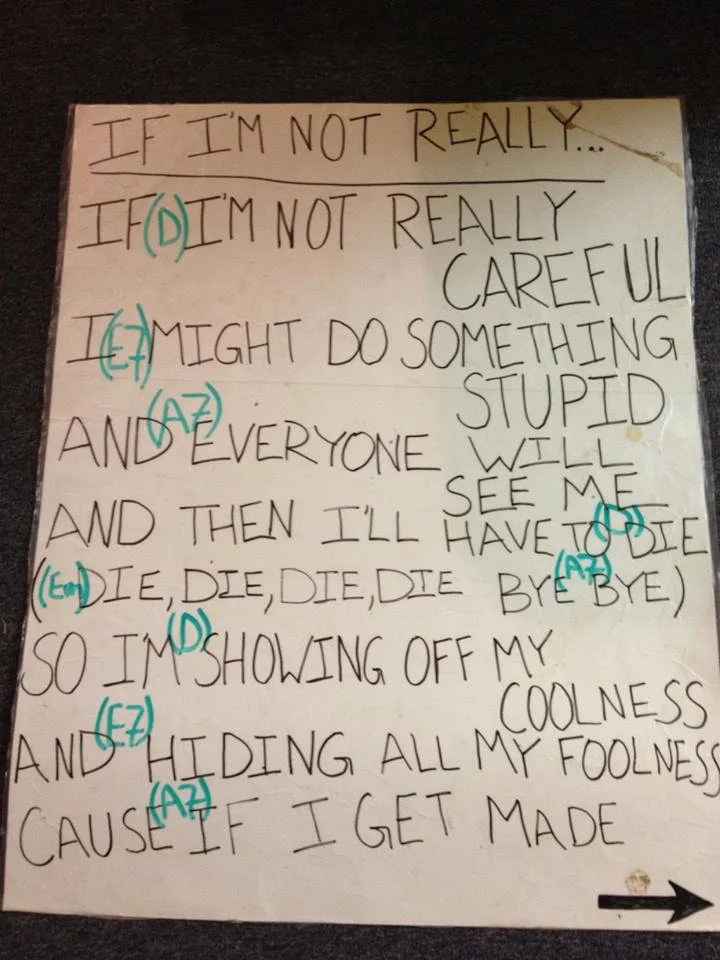 IF I'M NOT REALLY...
IF (D) I'M NOT REALLY
CAREFUL
I (E7) MIGHT DO SOMETHING
STUPID
AND (A7) EVERYONE WILL
SEE ME
AND THEN I'LL HAVE TO (D) DIE
((Em) DIE, DIE, DIE, DIE BYE (A7) BYE)
SO I'M (D) SHOWING OFF MY
COOLNESS
AND (E7) HIDING ALL MY FOOLNESS
CAUSE (A7) IF I GET MADE